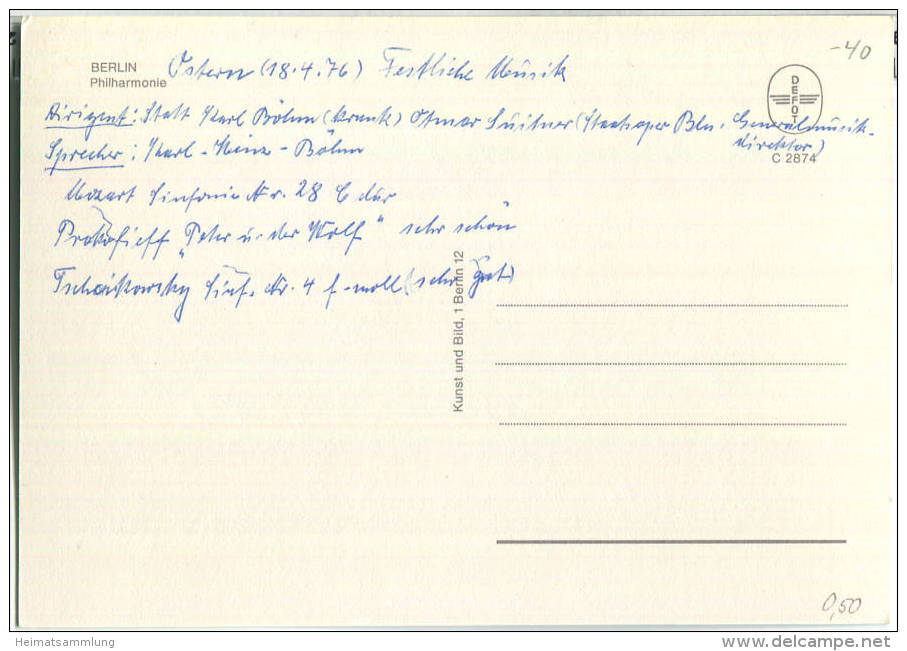 -40
BERLIN
Philharmonie
Ostern (18.4.76) Festliche Musik
DEFOT
C 2874
Dirigent: Statt Karl Böhm (krank) Otmar Suitner (Staatsoper Bln. Generalmusik-
direktor)
Sprecher: Karl-Heinz-Böhm
Mozart Sinfonie Nr. 28 C dur
Prokofieff „Peter u. der Wolf“ sehr schön
Tschaikowsky Sinf. Nr. 4 f-moll (sehr gut)
Kunst und Bild, 1 Berlin 12
0,50
Heimatsammlung
www.delcampe.net